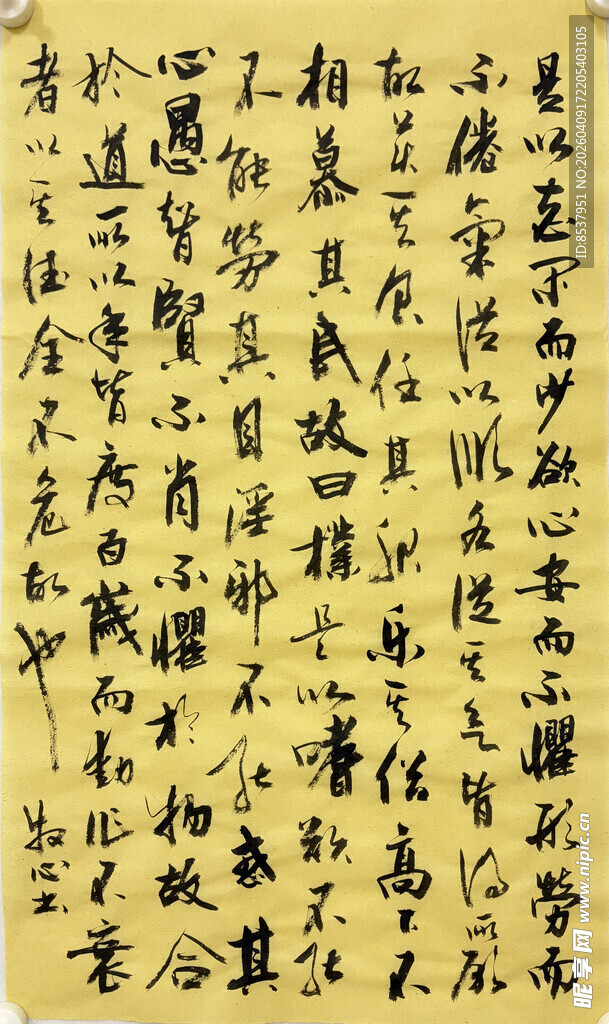 是以志閑而少欲心安而不懼形勞而
不倦氣從以順各從其皆得所願
故美其食任其服樂其俗高下不
相慕其民故曰樸是以嗜欲不能
不能勞其目淫邪不能惑其
心愚智賢不肖不懼於物故合
於道所以年皆度百歲而動作不衰
者以其德全不危故也
牧心书
ID:8537951 NO:20260409172205403105
昵享网 www.nipic.cn